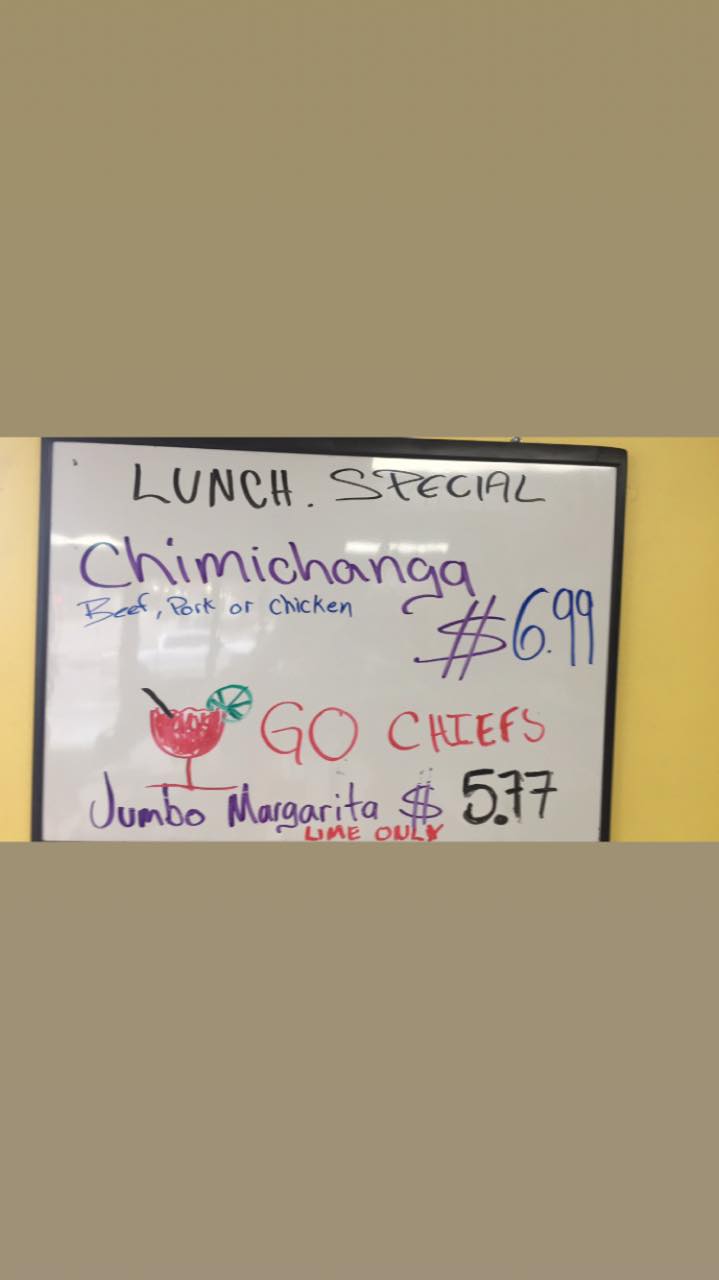 LUNCH. SPECIAL
Chimichanga
Beef, Pork or Chicken
$6.99
GO CHIEFS
Jumbo Margarita $ 5.77
LIME ONLY